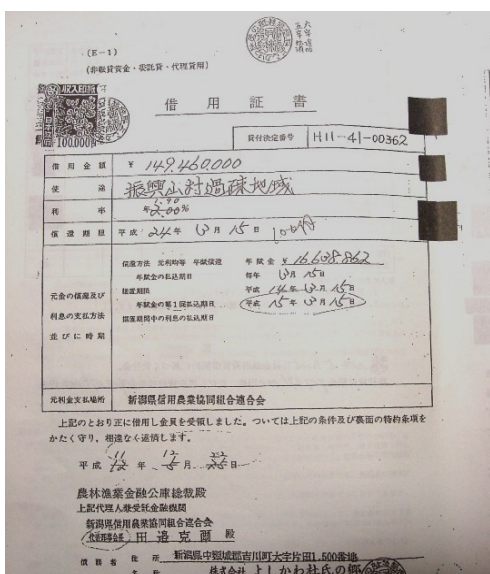 (E-1)
(非転貸資金・委託貸・代理貸用)
収入印紙
100,000円
借用証書
貸付決定番号 H11-41-00362
借用金額 ¥149.460.000
使途 振興山村過疎地域
利率 年2.00%
1.90
償還期限 平成24年12月15日
元金の償還及び利息の支払方法並びに時期
償還方法 元利均等 年賦償還 年賦金 ¥16.638.862
年賦金の払込期日 毎年12月15日
据置期限 平成14年12月15日
年賦金の第1回払込期日 平成15年12月15日
据置期間中の利息の払込期日
元利金支払場所 新潟県信用農業協同組合連合会
上記のとおり正に借用し金員を受領しました。ついては上記の条件及び裏面の特約条項を
かたく守り、相違なく返済します。
平成 年 月 日
農林漁業金融公庫総裁殿
上記代理人兼受託金融機関
新潟県信用農業協同組合連合会
代表理事会長 田邉克爾 殿
債務者 住所 新潟県中頸城郡吉川町大字片田1,500番地
株式会社よしかわ杜氏の郷